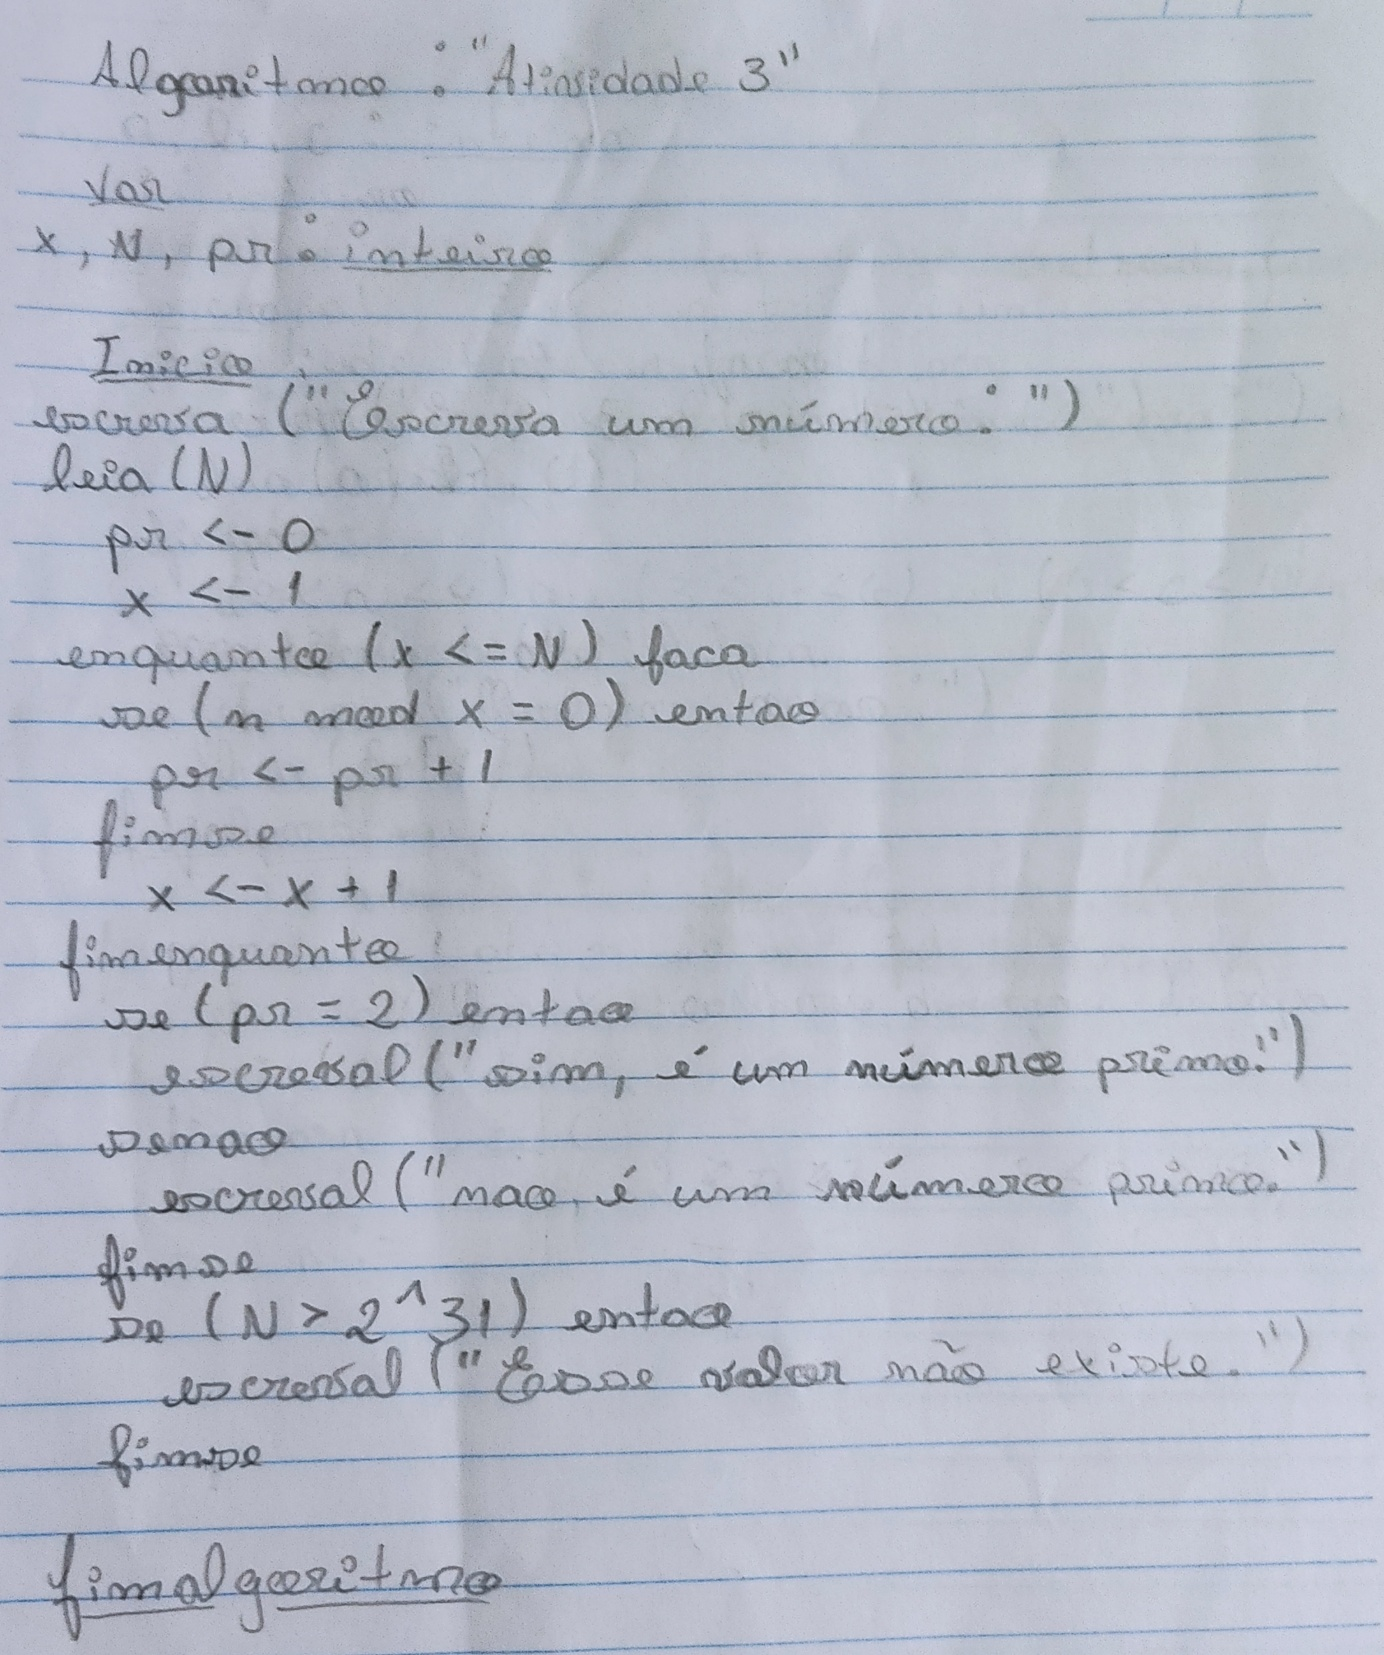 Algoritmo : "Atividade 3"
Var
x, N, pr : inteiro
Inicio
escreva ("Escreva um número: ")
leia (N)
pr <- 0
x <- 1
enquanto (x <= N) faca
se (n mod x = 0) entao
pr <- pr + 1
fimse
x <- x + 1
fimenquanto
se (pr = 2) entao
escreval ("sim, é um número primo.")
senao
escreval ("nao, é um número primo.")
fimse
se (N > 2^31) entao
escreval ("Esse valor não existe.")
fimse
fimalgoritmo